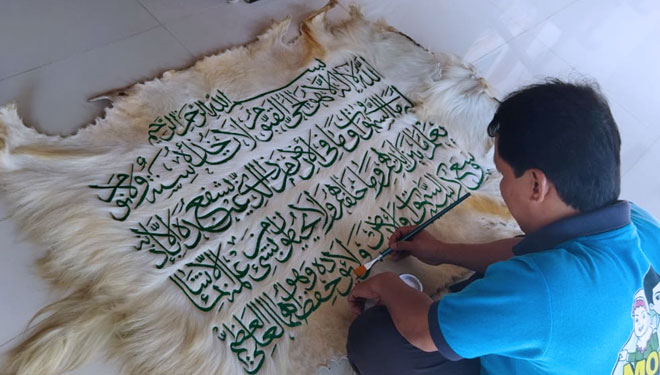 بسم الله الرحمن الرحيم
الله لا اله الا هو الحي القيوم لا تأخذه سنة ولا نوم
له ما في السموات وما في الارض من ذا الذي يشفع عنده الا باذنه
يعلم ما بين ايديهم وما خلفهم ولا يحيطون بشيء من علمه الا بما شاء
وسع كرسيه السموات والارض ولا يؤده حفظهما وهو العلي العظيم